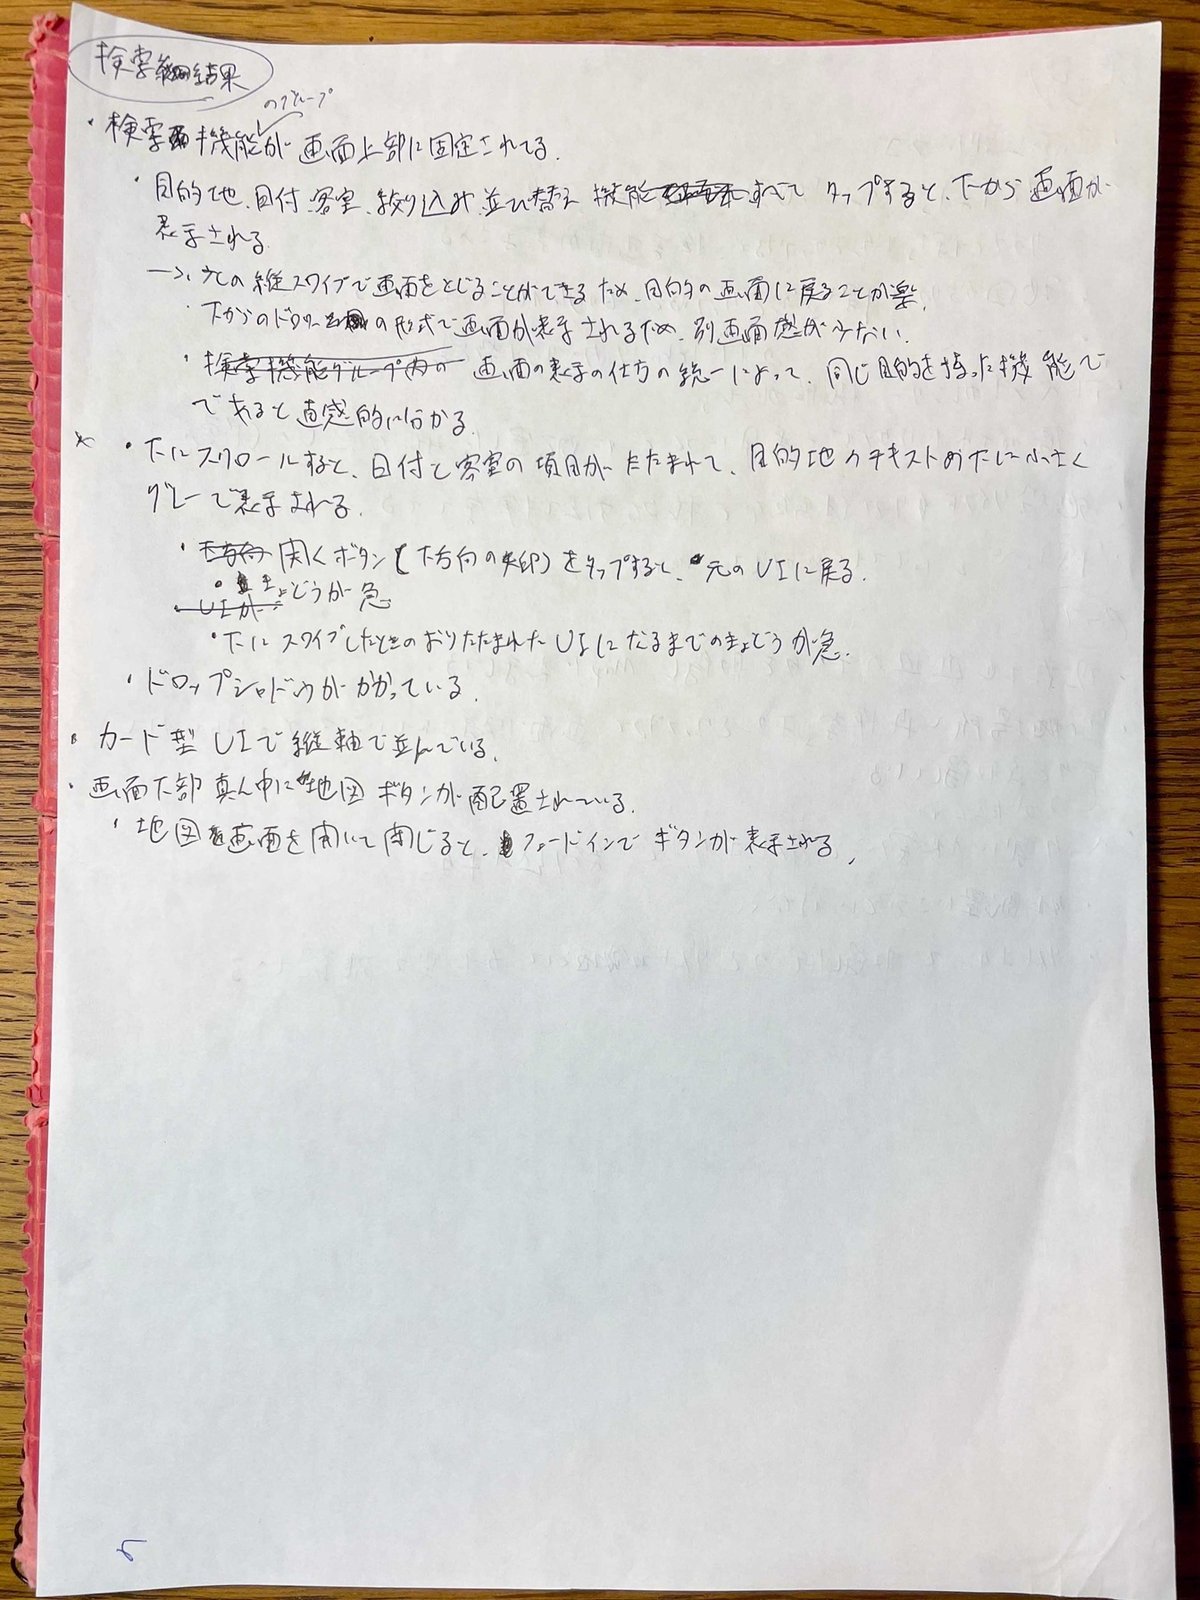 検索結果
のグループ
・検索機能が画面上部に固定されてる.
・目的地、日付、客室、絞り込み、並び替え機能すべてタップすると、下から画面が
表示される.
→・元の縦スワイプで画面をとじることができるため、目的の画面に戻ることが楽.
・下からのドロワーの形式で画面が表示されるため、別画面感が少ない.
・検索機能グループ内の画面の表示の仕方の統一によって、同じ目的を持った機能で
であると直感的に分かる.
* ・下にスクロールすると、日付と客室の項目がたたまれて、目的地のテキストの下に小さく
グレーで表示される.
・下方向 開くボタン(下方向の矢印)をタップすると、元のUIに戻る.
・きょどうが急
・UIが
・下にスワイプしたときのおりたたまれたUIになるまでのきょどうが急.
・ドロップシャドウがかかっている.
・カード型UIで縦軸で並んでいる.
・画面下部真ん中に地図ボタンが配置されている.
・地図画面を開いて閉じると、フェードインでボタンが表示される.